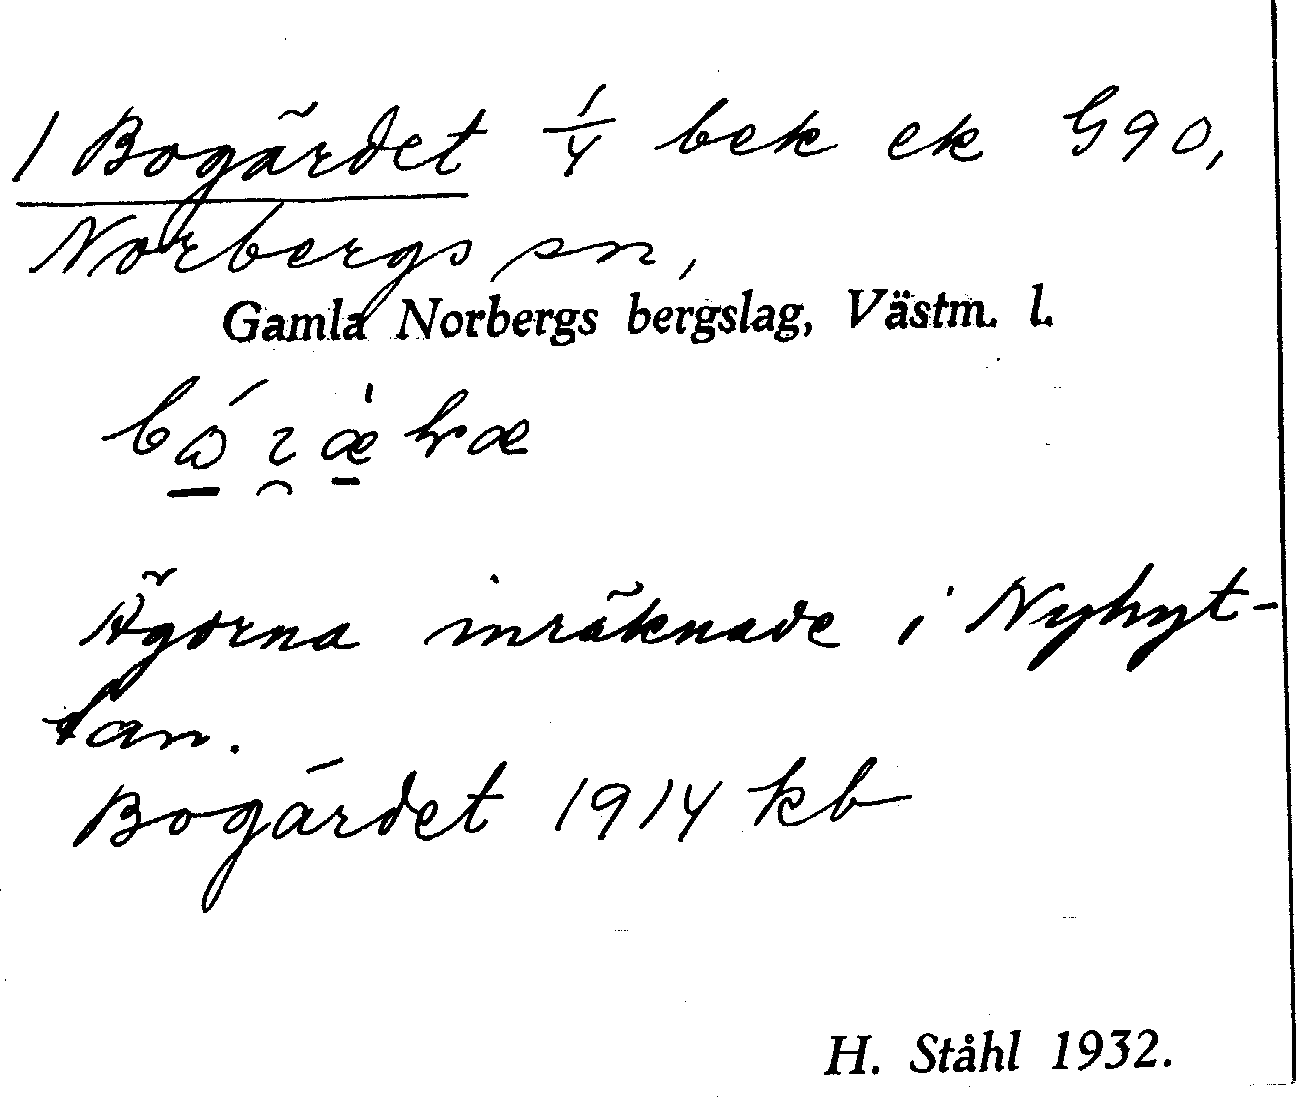 1 Bogärdet 1/4 bek ek G90,
Norbergs sn,
Gamla Norbergs bergslag, Västm. l.
Ägorna inräknade i Nyhyt-
tan.
Bogärdet 1914 kb
H. Ståhl 1932.